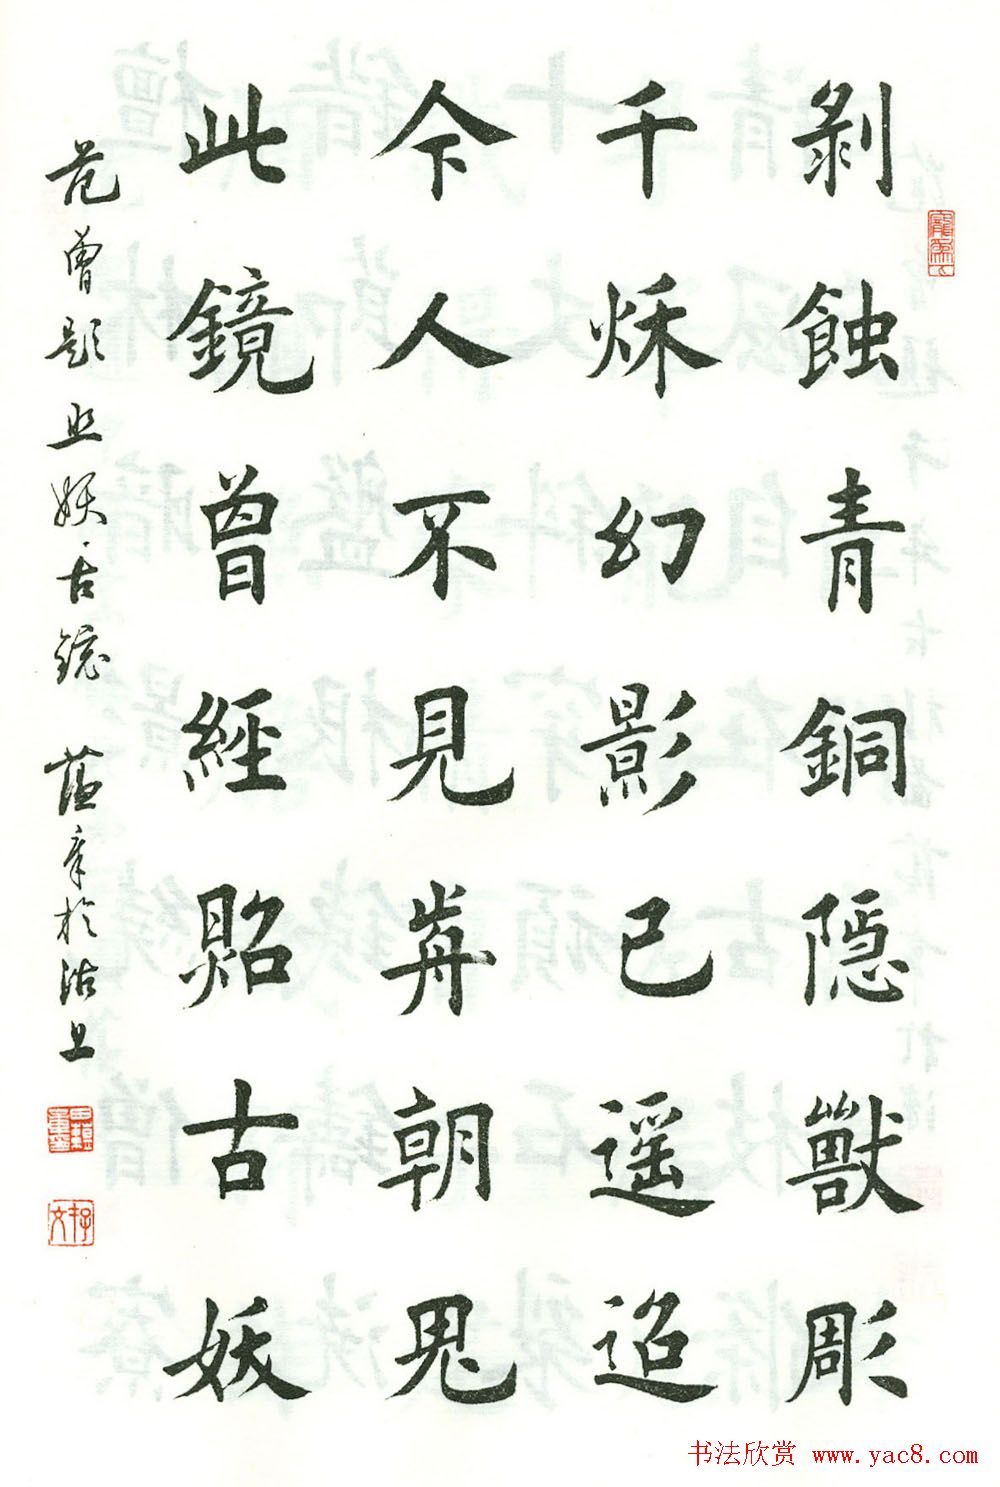 剝蝕青銅隱獸彫
千秌幻影已遥迢
今人不見歬朝鬼
此鏡曾經照古妖
范曾題照妖古鏡 蕴章於沽上
书法欣赏 www.yac8.com